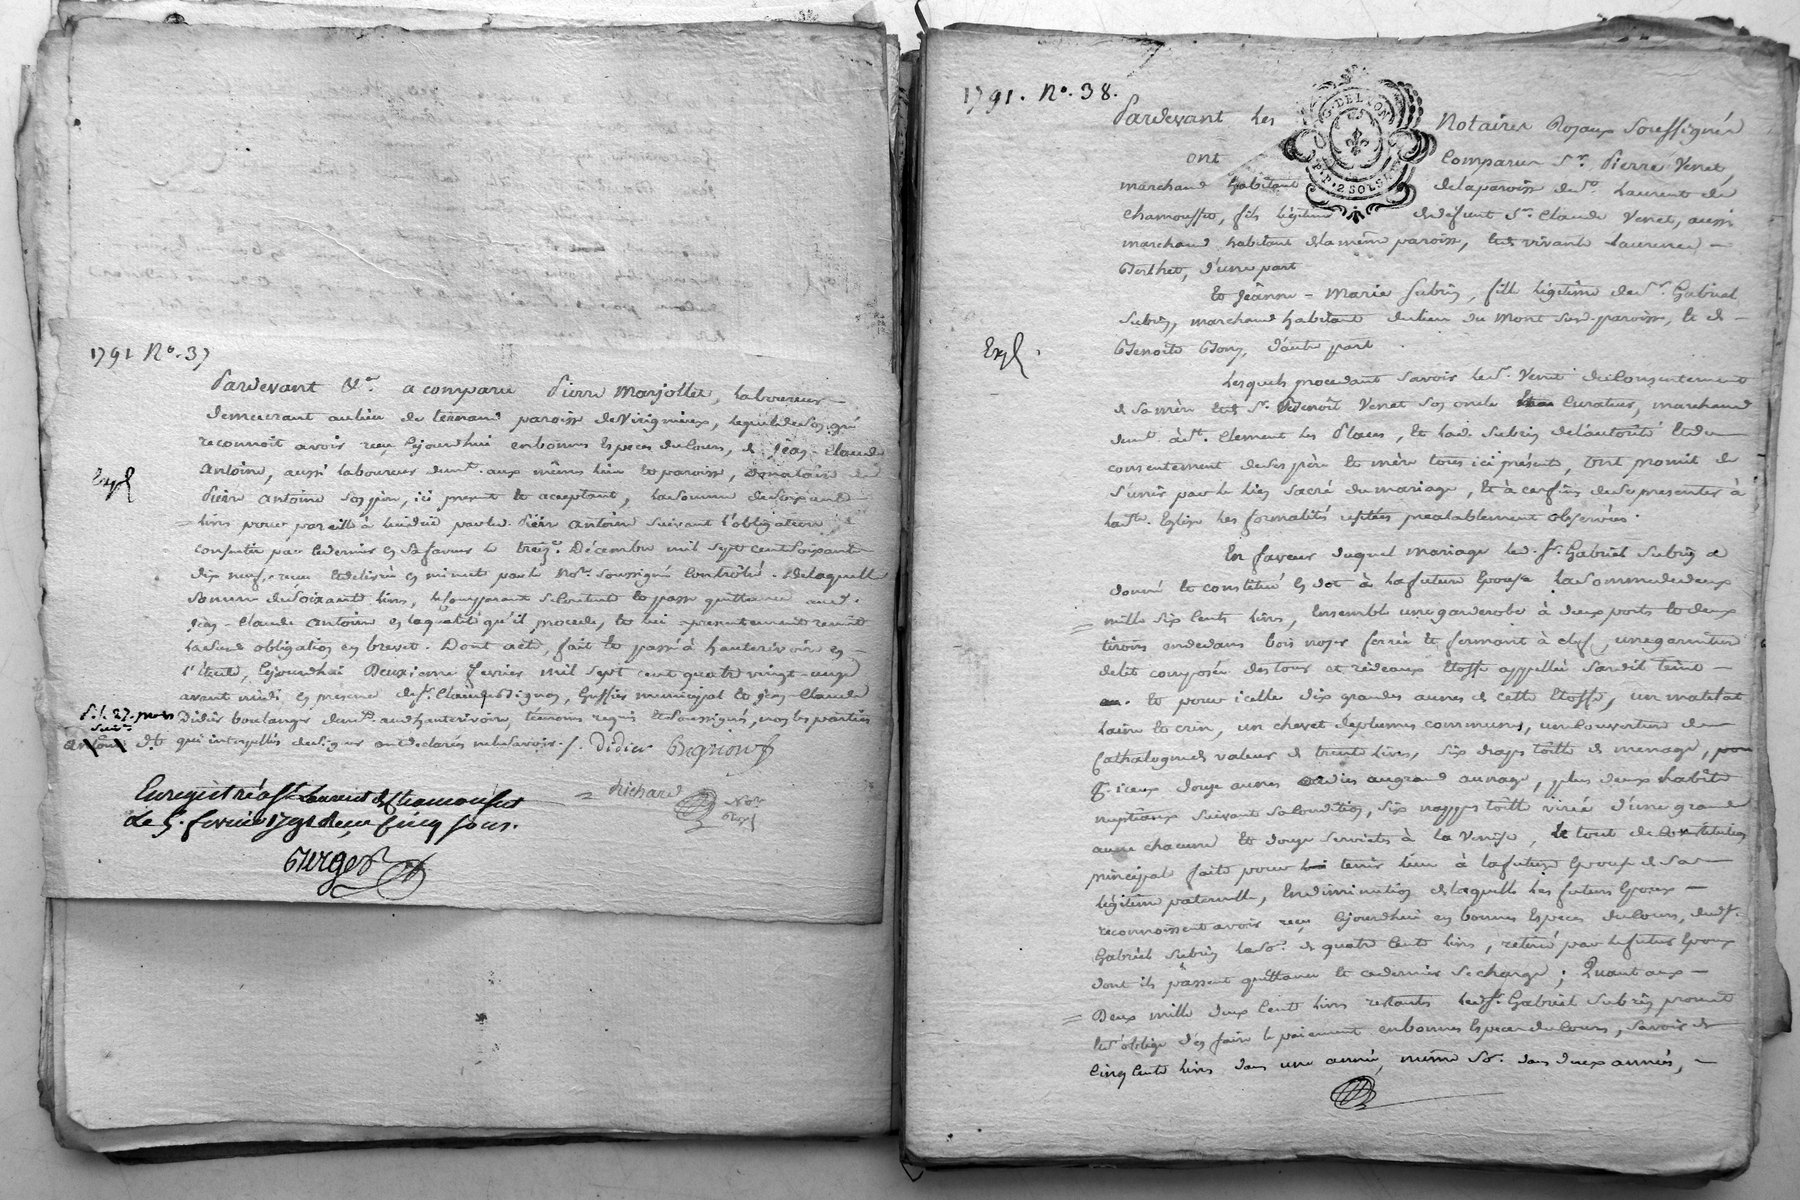 1791 N°. 37
Pardevant &c. a comparu Pierre Marjollet, Laboureur
demeurant au lieu de ternand paroisse de Virigneux, Lequel de son gré
reconnoît avoir reçu cejourdhui en bonnes Especes du Cours, de jean-Claude
antoine, aussi Laboureur demt. aux mêmes lieu et paroisse, Donataire de
Pierre antoine son père, ici present et acceptant, la somme de soixante
livres pour pareille à lui duë par led. Pierre antoine suivant l'obligation
en sa faveur le treize Décembre mil sept cent soixante
dix neuf, reçue et delivrée en minute par le Nore. soussigné Controllé. De laquelle
somme de soixante livres, le comparant se contente et passe quittance aud.
jean-Claude antoine en la qualité qu'il procede, et lui a presentement remit
lad. obligation en brevet. Dont acte, fait et passé à hauterivoire en
l'étude, cejourdhui Deuxieme fevrier mil sept cent quatre vingt-onze
avant midi, en presence de sr. Claude Grigno, Greffier municipal et jean-Claude
Didier boulanger demt. aud hauterivoire, témoins requis et soussignés, non les parties
antoine
qui interpellés de signer ont declarés ne le savoir. /. Didier
Richard Nore.
Royal
Expé
Enregistré à St. Laurent de Chamousset
Le 5. fevrier 1791 Reçu Cinq sous.
Berger
1791. N°. 38.
G. DE LYON
P.P. 2 SOLS
Pardevant Les Notaires Royaux soussignés
ont Comparu Sr. Pierre Venet,
marchand habitant de la paroisse de St. Laurent de
Chamousset, fils légitime de défunt Sr. Claude Venet, aussi
marchand habitant de la même paroisse, et de vivante Laurence
Berthet, d'une part
Et Jeanne-Marie Subrin, fille légitime de Sr. Gabriel
Subrin, marchand habitant du lieu du Mont susd. paroisse, et de
Benoite Bony, d'autre part.
Expé.
Lesquels procedant savoir led. Sr. Venet du Consentement
de sa mère et de Sr. Benoît Venet son oncle Curateur, marchand
demt. à St. Clement Les Places, et lad. Subrin de l'autorité et du
consentement de ses père et mère tous ici présents, ont promit de
s'unir par le lien sacré du mariage, et à ces fins de se presenter à
la Ste. Eglise les formalités usitées prealablement observées.
En faveur duquel mariage led. Sr. Gabriel Subrin a
donné et constitué en dot à la future Epouse la somme de deux
mille six Cents livres, Ensemble une garderobe à deux portes et deux
tiroirs en dedans bois noyer ferrée et fermant à clef, une garniture
de lit composée des tours et rideaux Etoffe appellée Cardit teint
et pour icelle dix grandes aunes de cette Etoffe, un matelat
laine et crin, un chevet de plumes communes, une Couverture de
Cathalogne de valeur de trente livres, six draps toille de menage, pour
iceux douze aunes au grand aunage, plus deux habits
nuptiaux suivant sa condition, six nappes toille virée d'une grande
aune chacune et douze serviettes à la Venise, le tout de Constitution
principal faite pour tenir lieu à la future Epouse de sa
légitime paternelle, En diminution de laquelle les futurs Epoux
reconnoissent avoir reçu cejourdhui en bonnes Especes du Cours, dud. Sr.
Gabriël Subrin la so. de quatre Cents livres, retirée par le futur Epoux
dont ils passent quittance et ce dernier se charge; Quant aux
Deux mille deux Cents livres restants led. Sr. Gabriel Subrin promet
et s'oblige d'en faire le paiement en bonnes Especes du Cours, savoir de
Cinq Cents livres dans une année, même so. dans deux années,